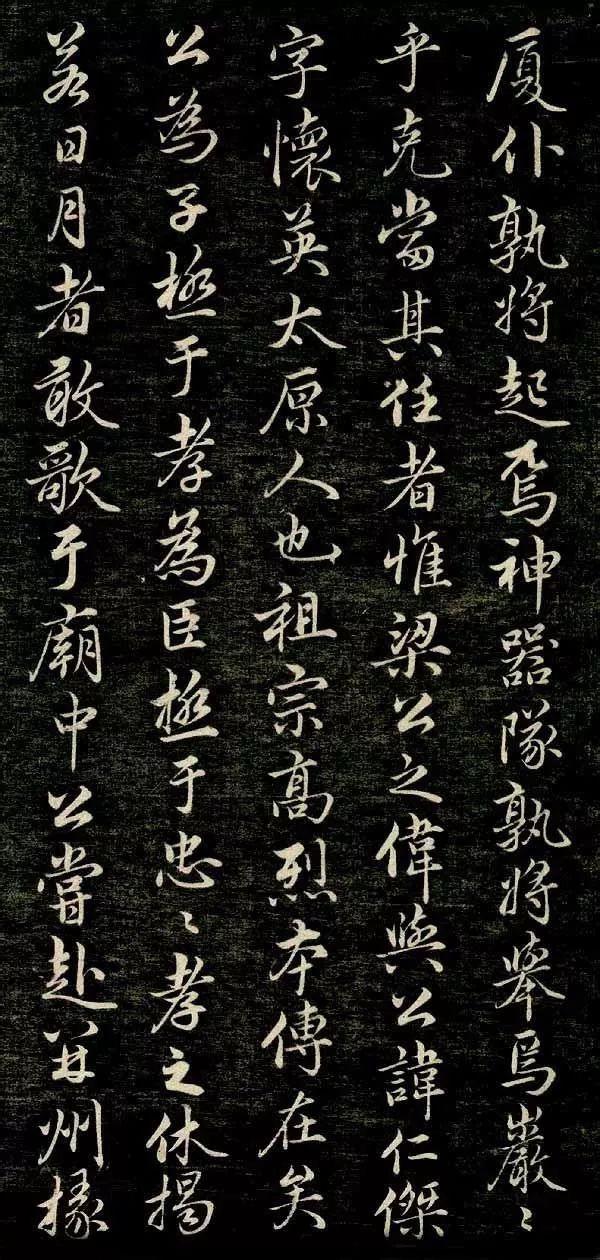 厦仆孰將起焉神器隊孰將舉焉巖〻
乎克當其任者惟梁公之偉與公諱仁傑
字懷英太原人也祖宗高烈本傳在矣
公為子極于孝為臣極于忠〻孝之休揭
若日月者敢歌于廟中公嘗赴并州掾